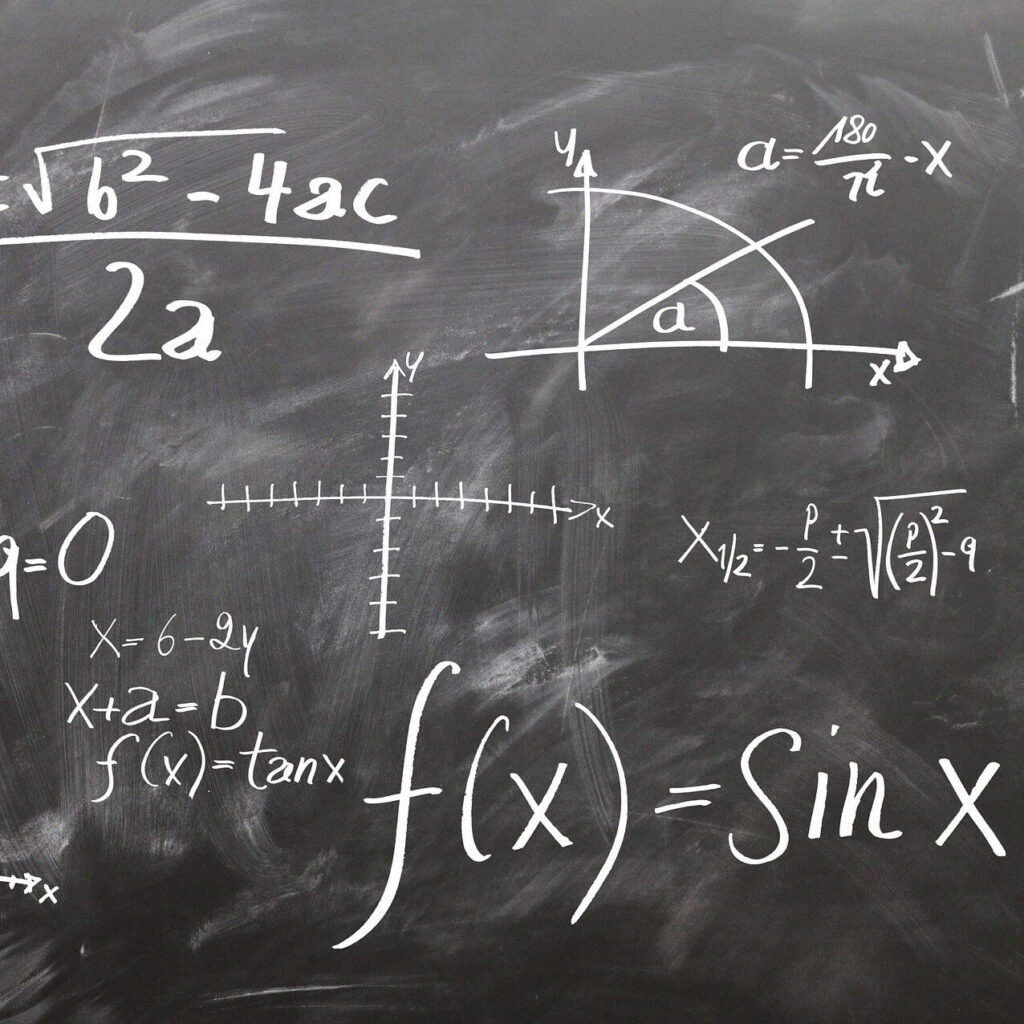 ±√b² - 4ac
2a
y
a = 180/π - x
a
x
y
x
q = 0
x₁/₂ = - p/2 ± √(p/2)² - q
x = 6 - 2y
x + a = b
f(x) = tan x
f(x) = Sin x
x